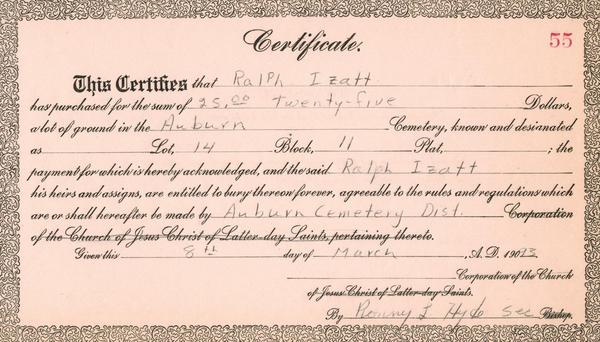 Certificate.
55
This Certifies that Ralph Izatt
has purchased for the sum of 25.00 twenty-five Dollars,
a lot of ground in the Auburn Cemetery, known and designated
as Lot, 14 Block, 11 Plat, ; the
payment for which is hereby acknowledged, and the said Ralph Izatt
his heirs and assigns, are entitled to bury thereon forever, agreeable to the rules and regulations which
are or shall hereafter be made by Auburn Cemetery Dist. Corporation
of the Church of Jesus Christ of Latter-day Saints, pertaining thereto.
Given this 8th day of March , A.D. 19
Corporation of the Church
of Jesus Christ of Latter-day Saints.
By L Hyde Sec Bishop.